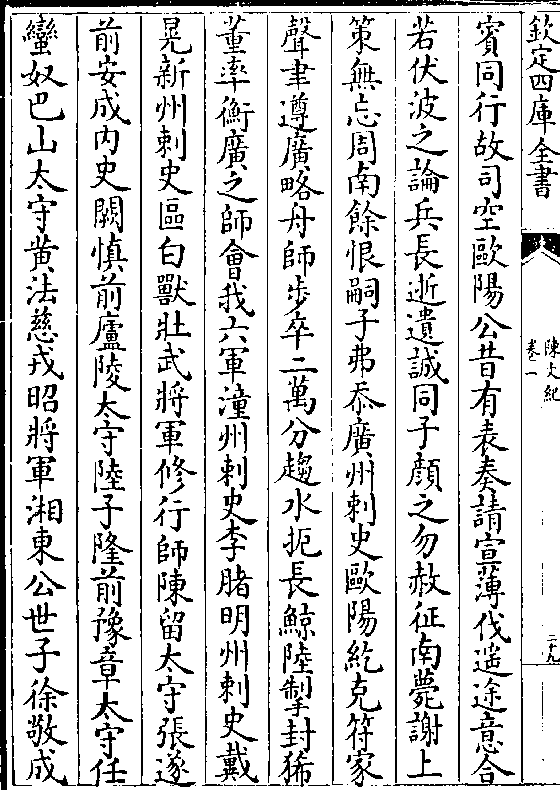 欽定四庫全書
陳文紀
卷一
二十九
賓同行故司空歐陽公昔有表奏請宣薄伐遥途意合
若伏波之論兵長逝遺誠同子顔之勿赦征南薨謝上
策無忘周南餘恨嗣子弗忝廣州刺史歐陽紇克符家
聲聿遵廣略舟師步卒二萬分趨水扼長鯨陸掣封狶
董率衡廣之師會我六軍潼州刺史李䐗明州刺史戴
晃新州刺史區白獸壯武將軍修行師陳留太守張遂
前安成内史闕慎前廬陵太守陸子隆前豫章太守任
蠻奴巴山太守黄法慈戎昭將軍湘東公世子徐敬成